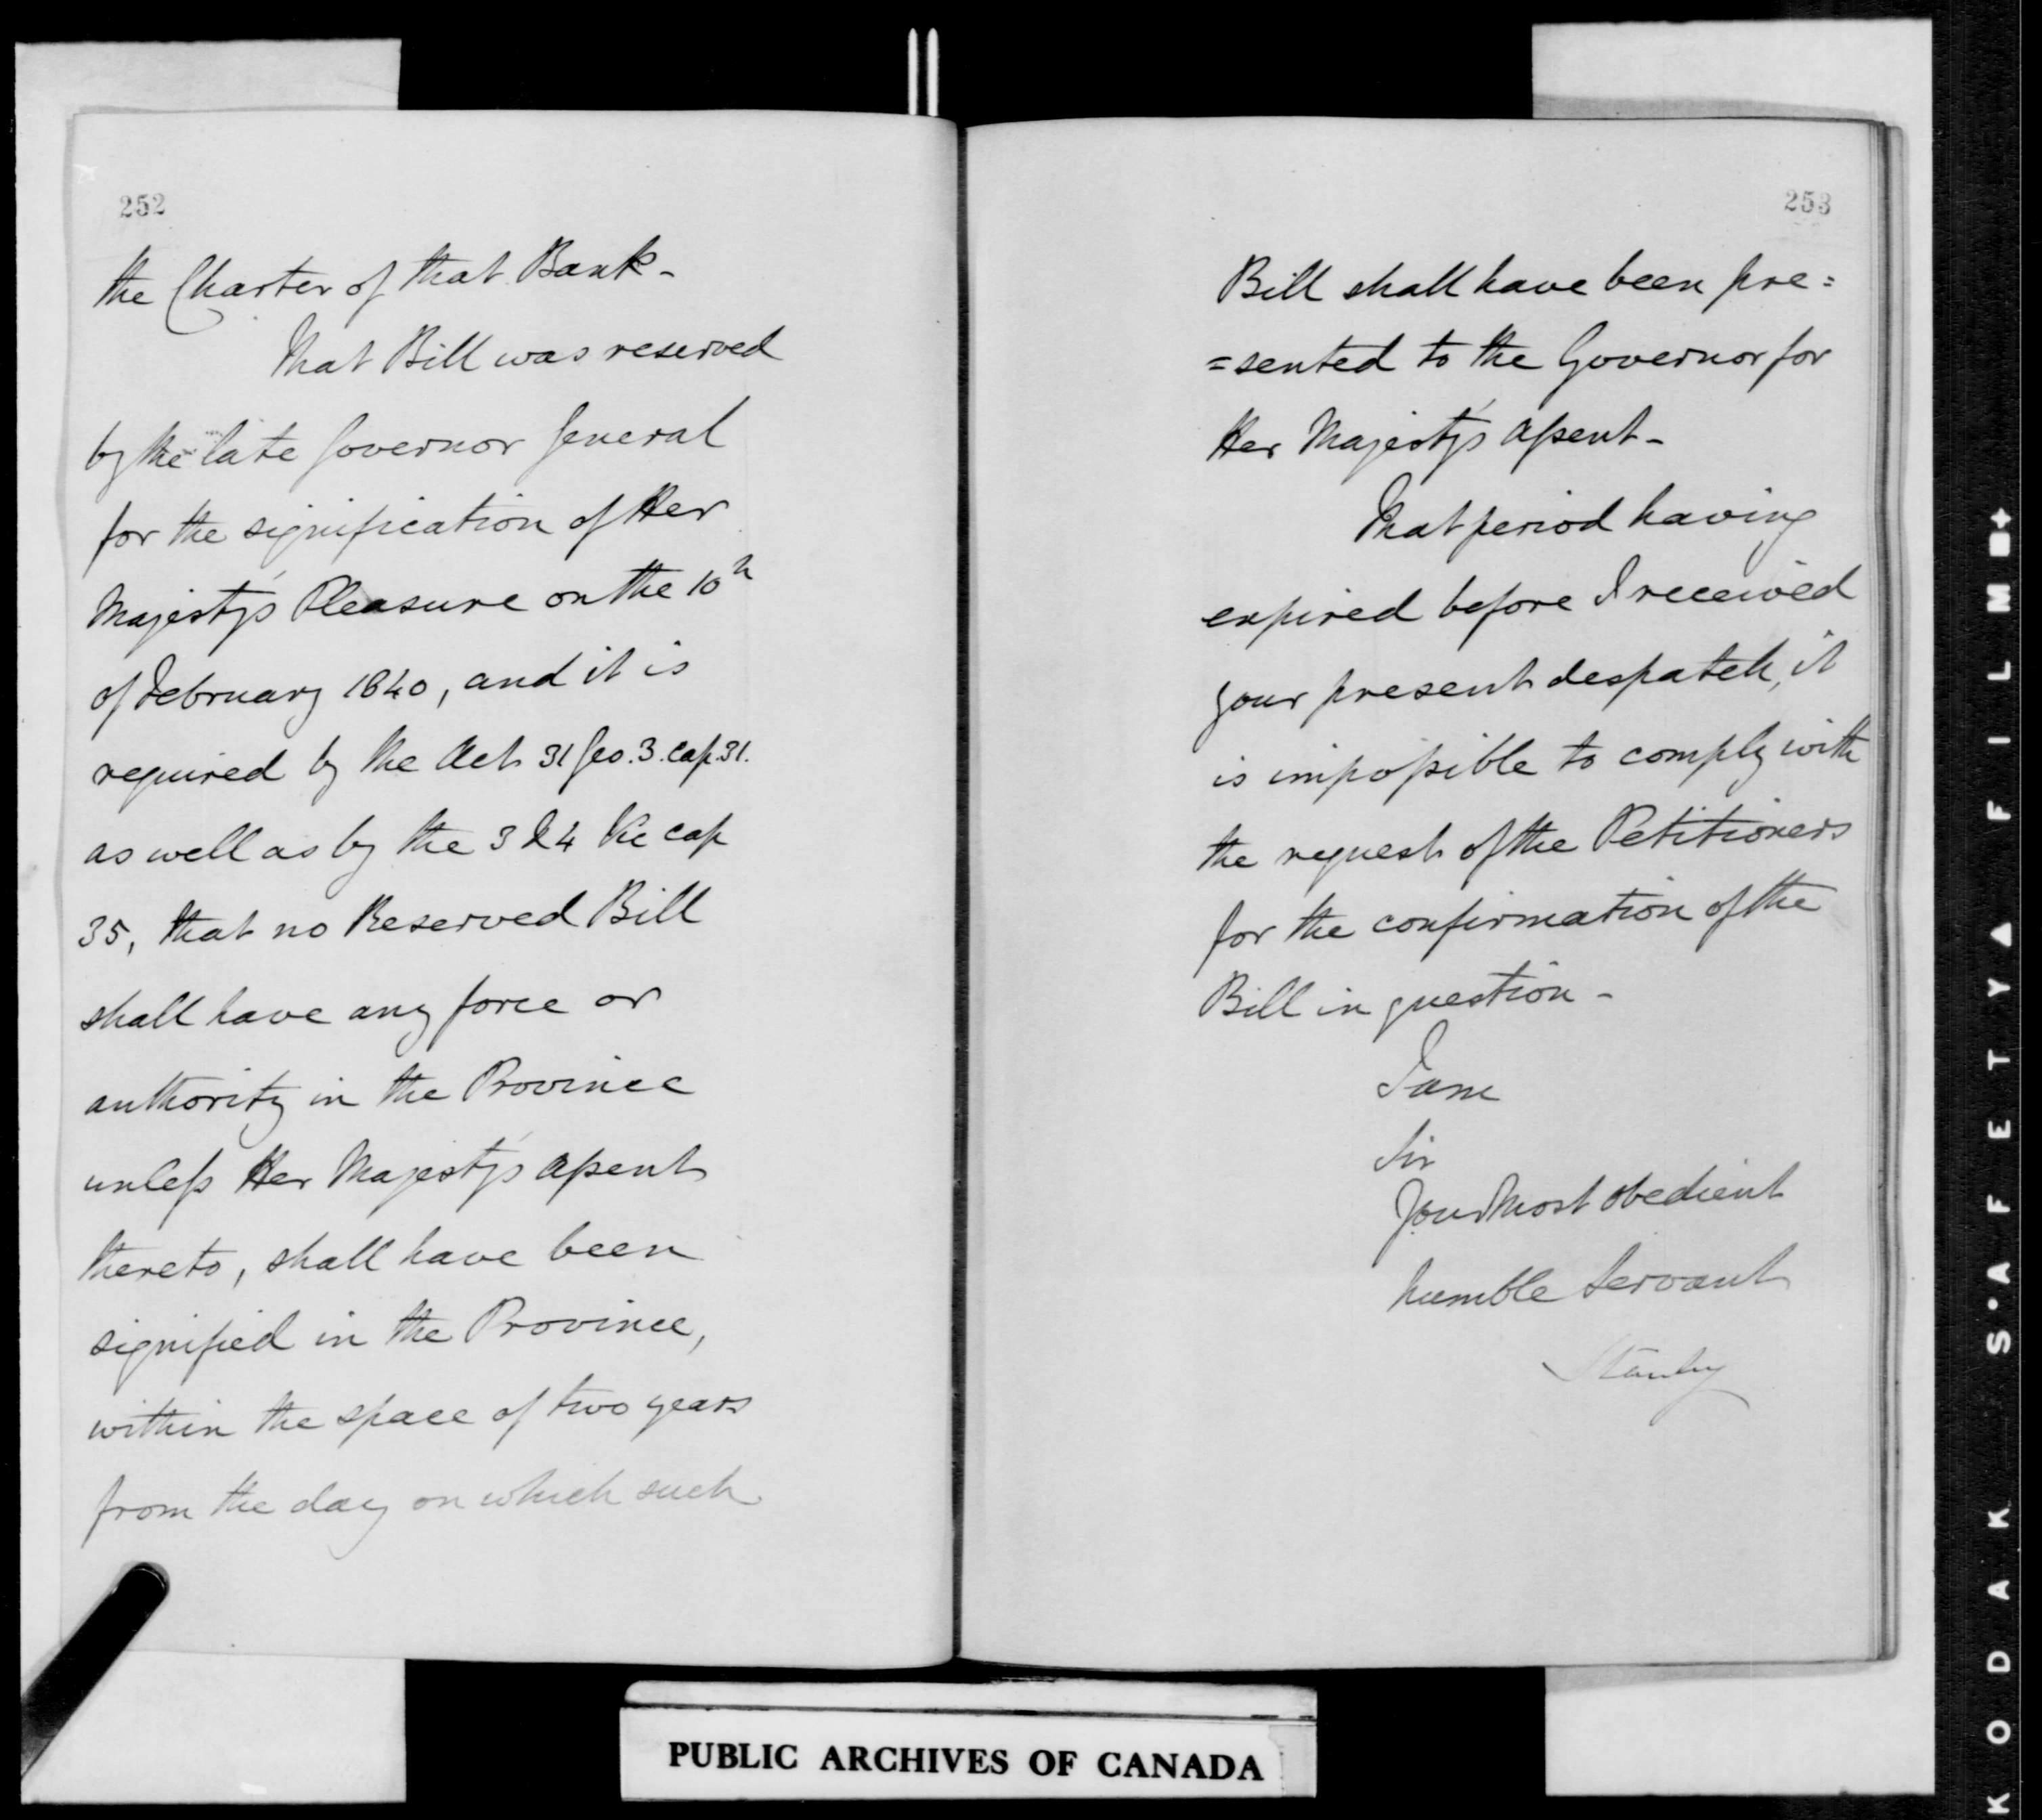 252
the Charter of that Bank -
That Bill was reserved
by the late Governor General
for the signification of Her
Majesty's Pleasure on the 10h
of February 1840, and it is
required by the Act 31 Geo. 3. Cap. 31.
as well as by the 3 & 4 Vic cap
35, that no Reserved Bill
shall have any force or
authority in the Province
unless Her Majesty's assent
thereto, shall have been
signified in the Province,
within the space of two years
from the day on which such
253
Bill shall have been pre=
=sented to the Governor for
Her Majesty's assent -
That period having
expired before I received
your present despatch, it
is impossible to comply with
the request of the Petitioners
for the confirmation of the
Bill in question -
I am
Sir
Your Most obedient
humble Servant
Stanley
PUBLIC ARCHIVES OF CANADA
KODAK S·AFETY▲ FILM